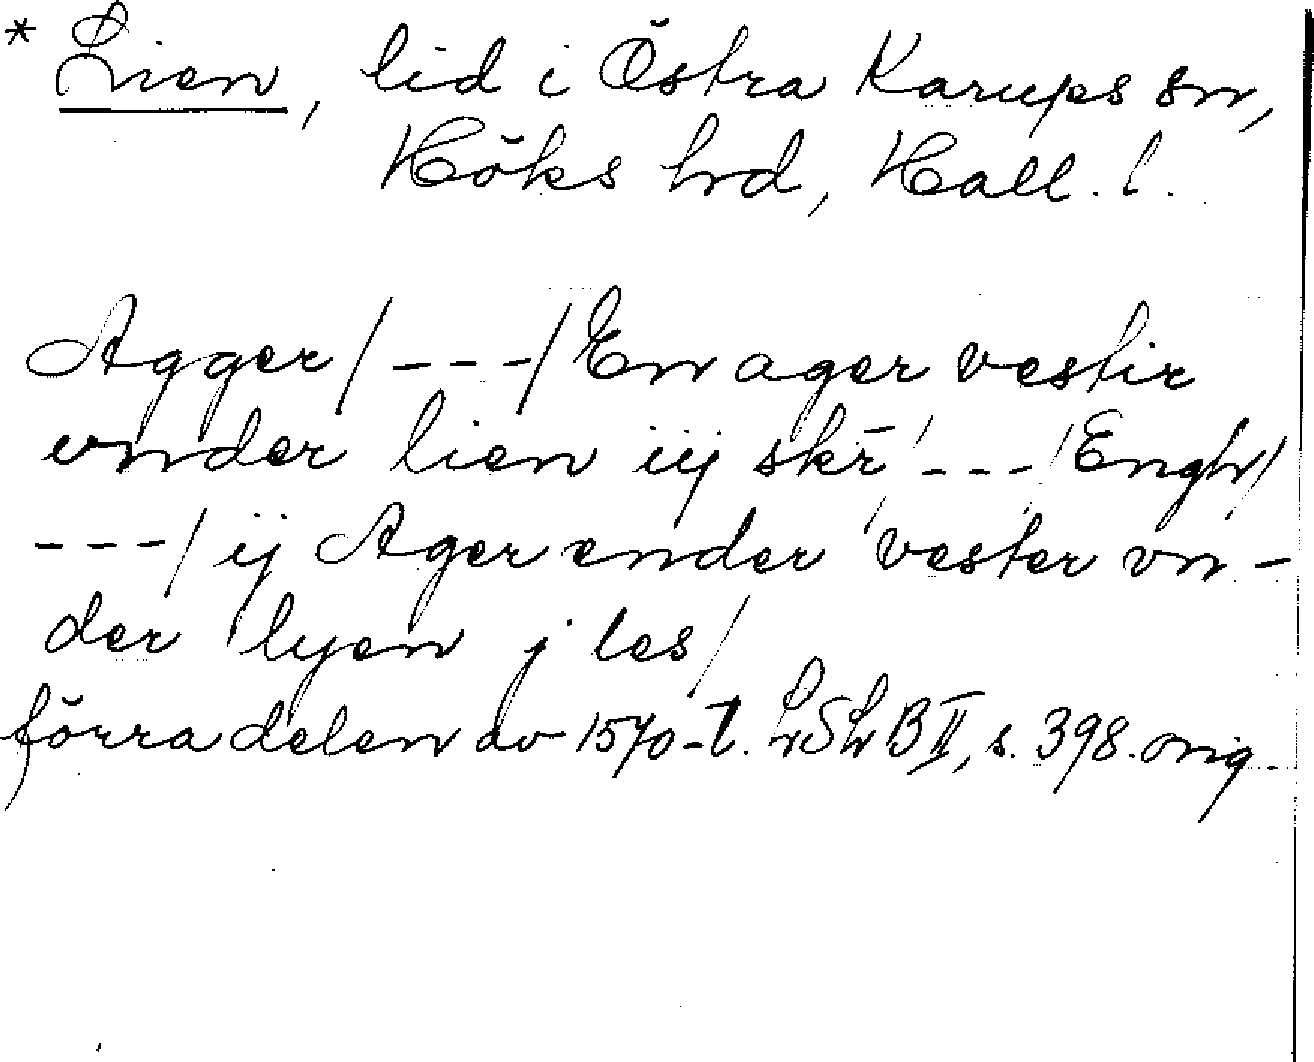 * Lien, lid i Östra Karups sn,
Höks hrd, Hall. l.
Agger/---/En ager vestir
vnder lien iij skr̄/---/Engh/
---/ij Ager ender vester vn-
der lyen j les/
förra delen av 1570-t. LSLB II, s. 398. orig.